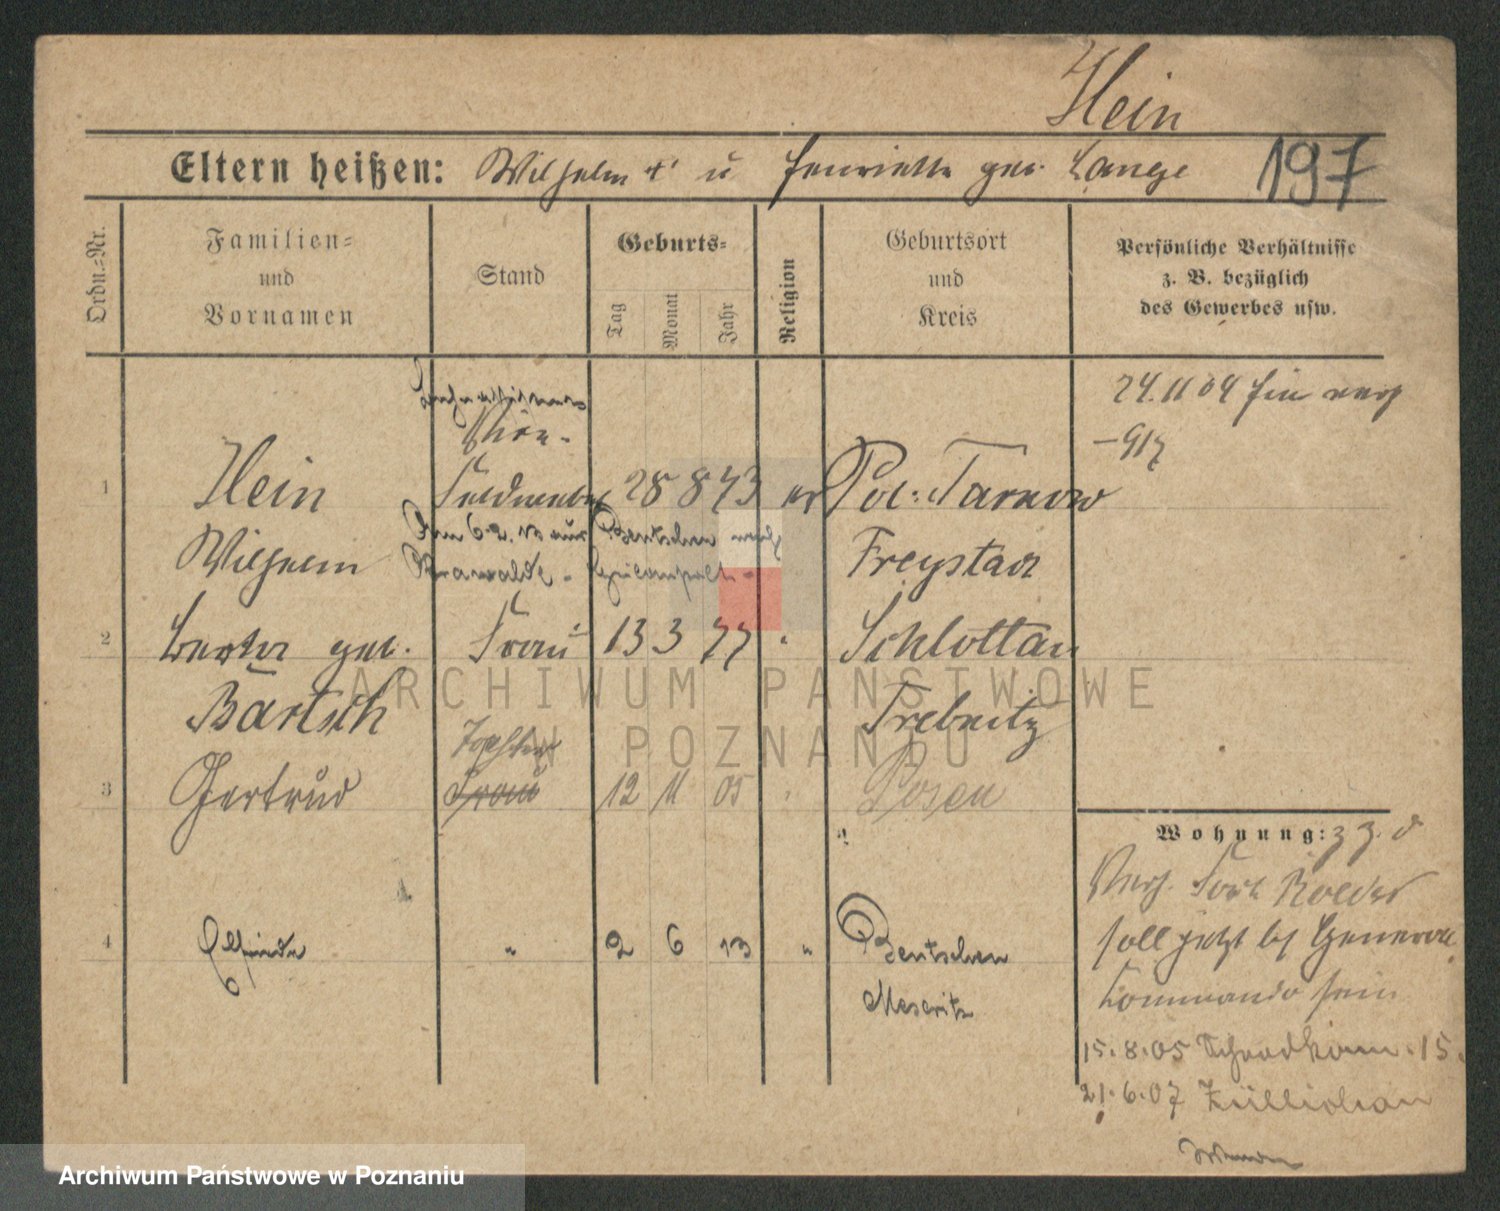 Hein
Eltern heißen: Wilhelm † u Henriette geb. Lange 197
Ordn.-Nr.
Familien-
und
Vornamen
Stand
Geburts-
Tag
Monat
Jahr
Religion
Geburtsort
und
Kreis
Persönliche Verhältnisse
z. B. bezüglich
des Gewerbes usw.
24.11 04
1 Hein Feldwebel 28 8 73 ev Pol: Tarnow
Am 6.2. 13 aus Bentschen nach
Wilhelm Freystadt
2 geb. Frau 13 3 77 " Schlottau
Bartsch Trebnitz
Tochter
3 Gertrud Frau 12 11 05 " Posen
Wohnung: z. Z. d
Fort Roeder
4 Elfriede " 2 6 13 " Bentschen
soll jetzt bei General
Meseritz
Kommando sein
15.8.05 15.
21.6.07 Züllichau
ARCHIWUM PAŃSTWOWE
W POZNANIU
Archiwum Państwowe w Poznaniu